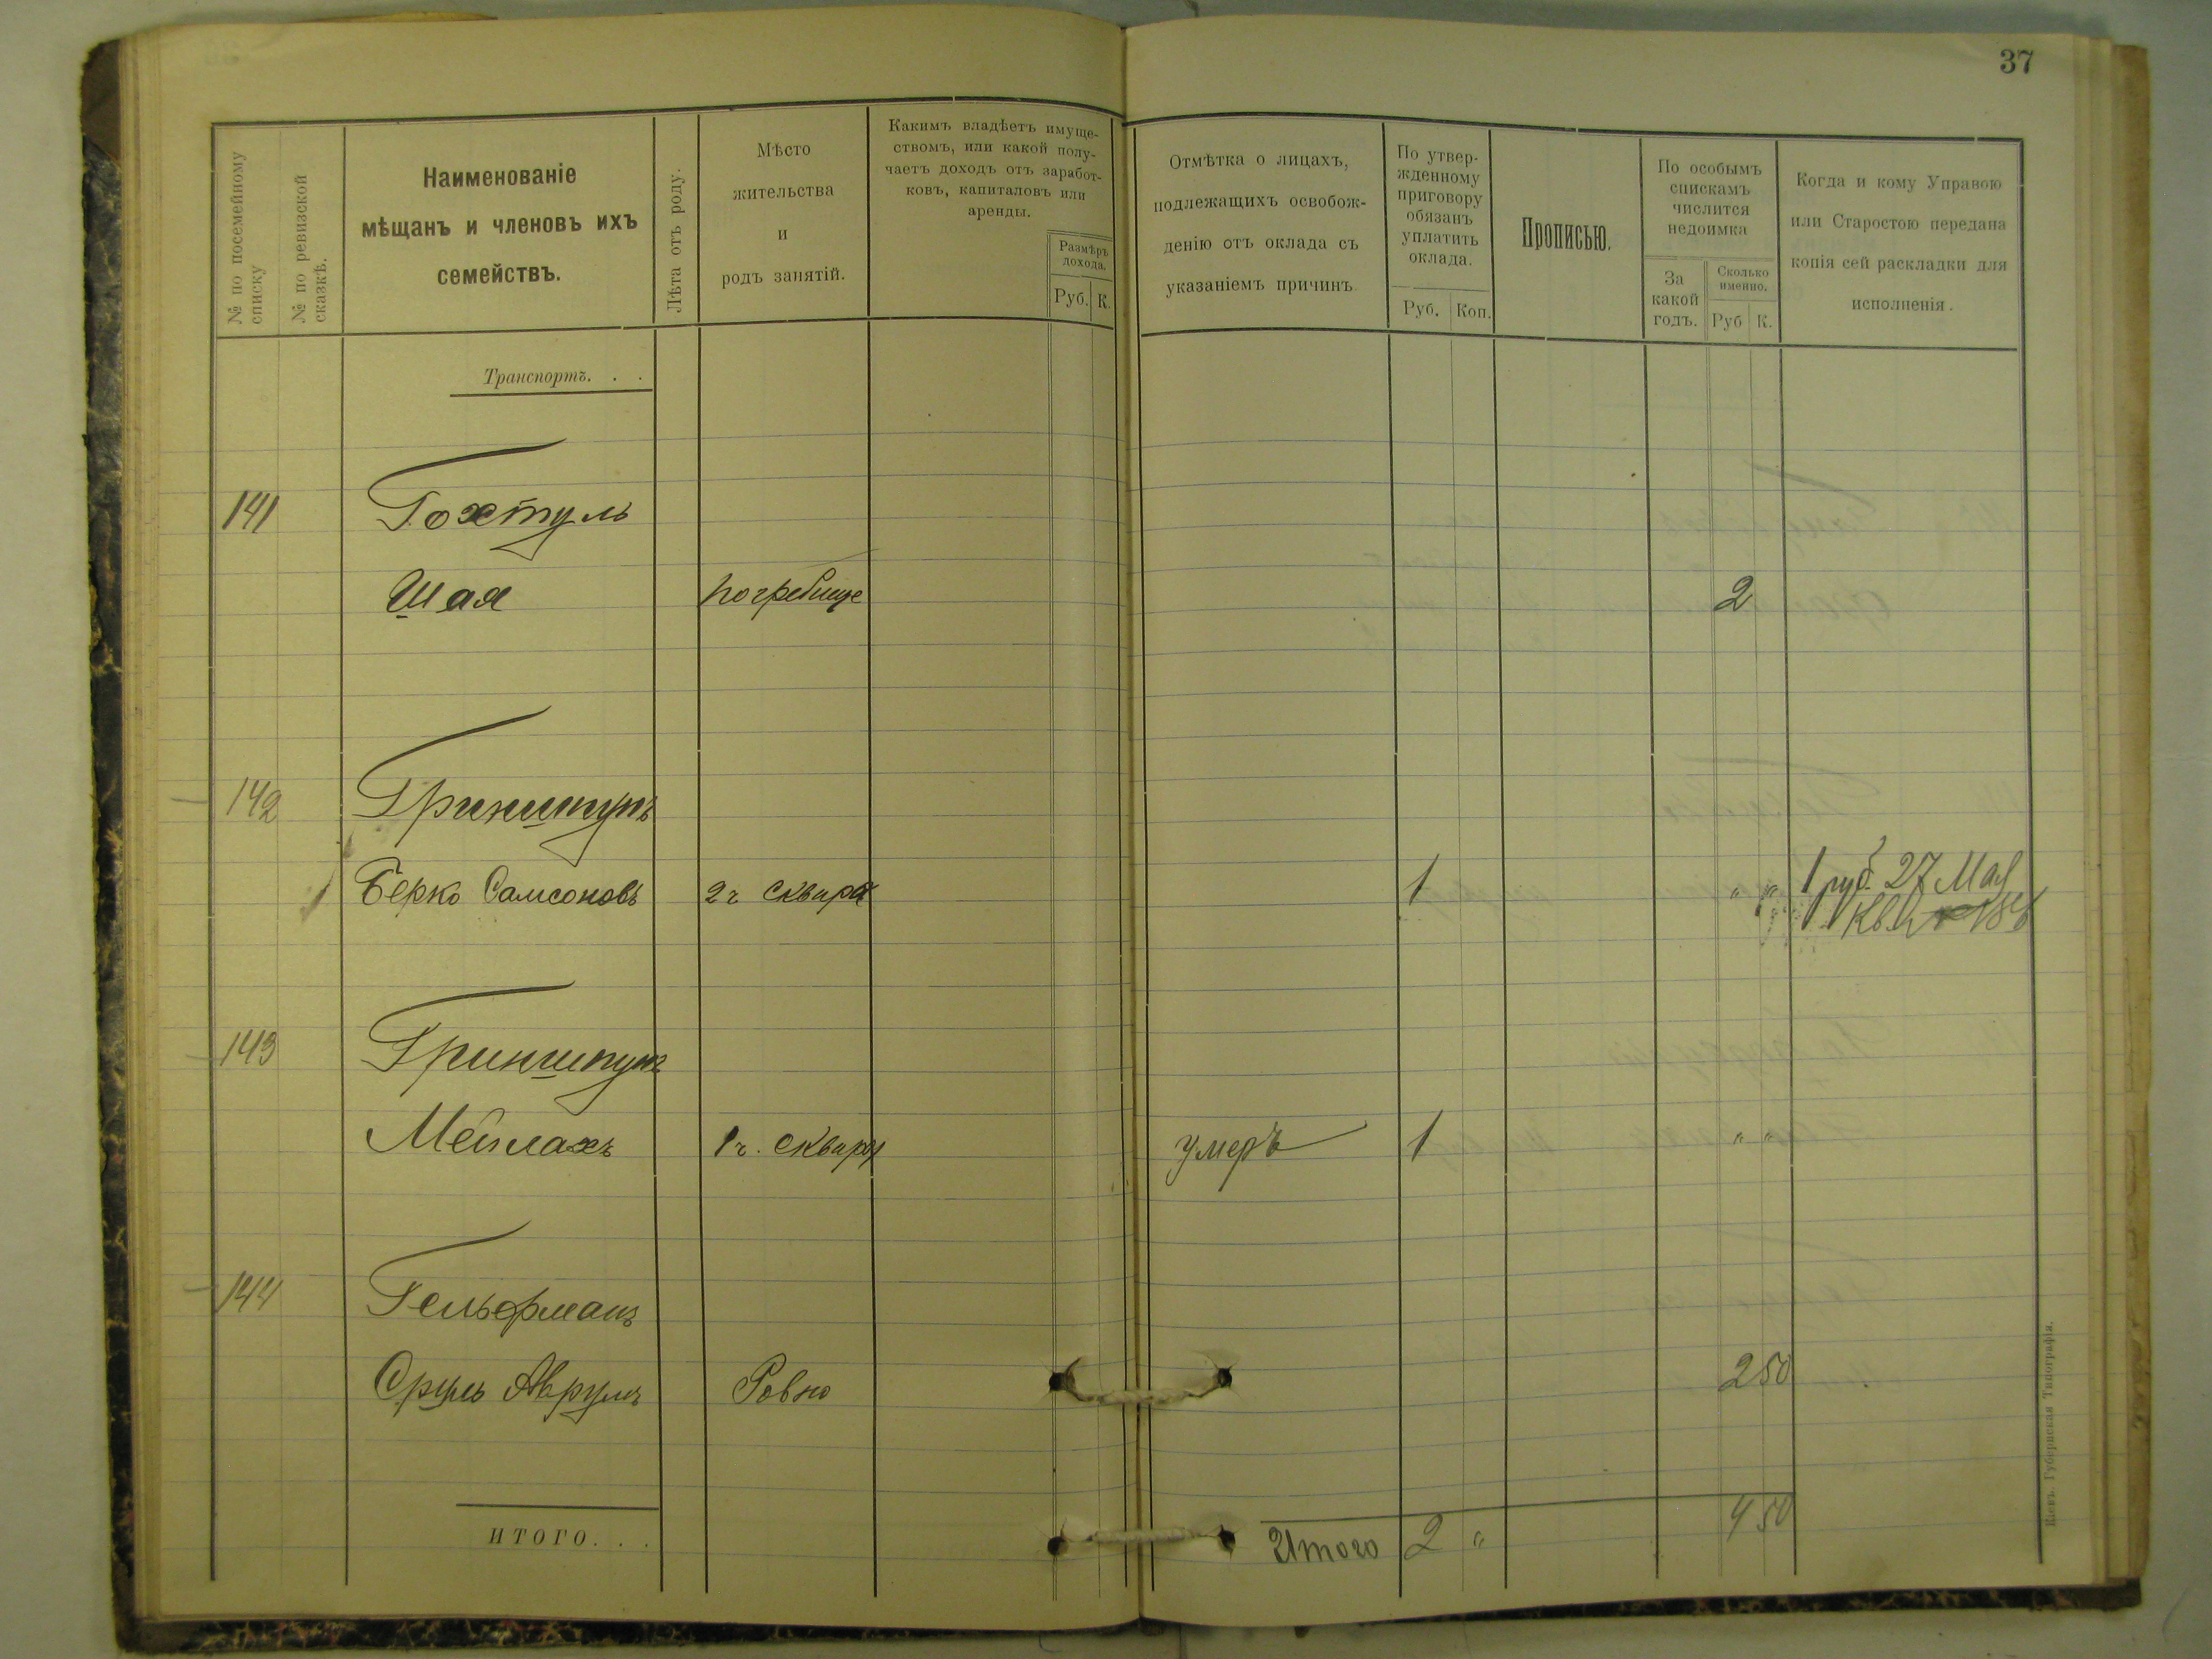 37
№ по посемейному
списку
№ по ревизской
сказкѣ.
Наименованіе
мѣщанъ и членовъ ихъ
семействъ.
Лѣта отъ роду.
Мѣсто
жительства
и
родъ занятій.
Какимъ владѣетъ имуще-
ствомъ, или какой полу-
чаетъ доходъ отъ заработ-
ковъ, капиталовъ или
аренды.
Размѣръ
дохода.
Руб. К.
Отмѣтка о лицахъ,
подлежащихъ освобож-
денію отъ оклада съ
указаніемъ причинъ
По утвер-
жденному
приговору
обязанъ
уплатить
оклада.
Руб. Коп.
Прописью.
По особымъ
спискамъ
числится
недоимка
За
какой
годъ.
Сколько
именно.
Руб К.
Когда и кому Управою
или Старостою передана
копія сей раскладки для
исполненія.
Транспортъ. . .
141 Гохтуль
Шая погребище 2
142 Гриншпунъ
Берко Самсоновъ 2 ч Сквира 1 " " 1 руб. 27 Мая
143 Гриншпунъ
Мейлахъ 1 ч. Сквиры умеръ 1 " "
144 Гельфманъ
Сруль Аврумъ Ровно 2 50
ИТОГО. . . Итого 2 " 4 50
Кіевъ. Губернская Типографія.